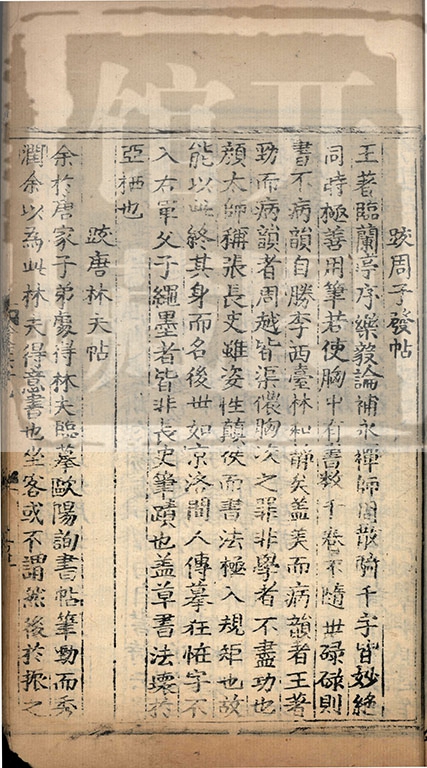 跋周子發帖
王著臨蘭亭序樂毅論補永禪師周散騎千字皆妙絶
同時極善用筆若使胸中有書數千卷不隨世碌碌則
書不病韻自勝李西臺林和靖矣盖美而病韻者王著
勁而病韻者周越皆渠儂胸次之罪非學者不盡功也
顔太師稱張長史雖姿性顛佚而書法極入規矩也故
能以此終其身而名後世如京洛間人傳摹狂怪字不
入右軍父子繩墨者皆非長史筆蹟也盖草書法壞於
亞栖也
跋唐林夫帖
余於唐家子弟處得林夫臨摹歐陽詢書帖筆勁而秀
潤余以為此林夫得意書也坐客或不謂然後於振之